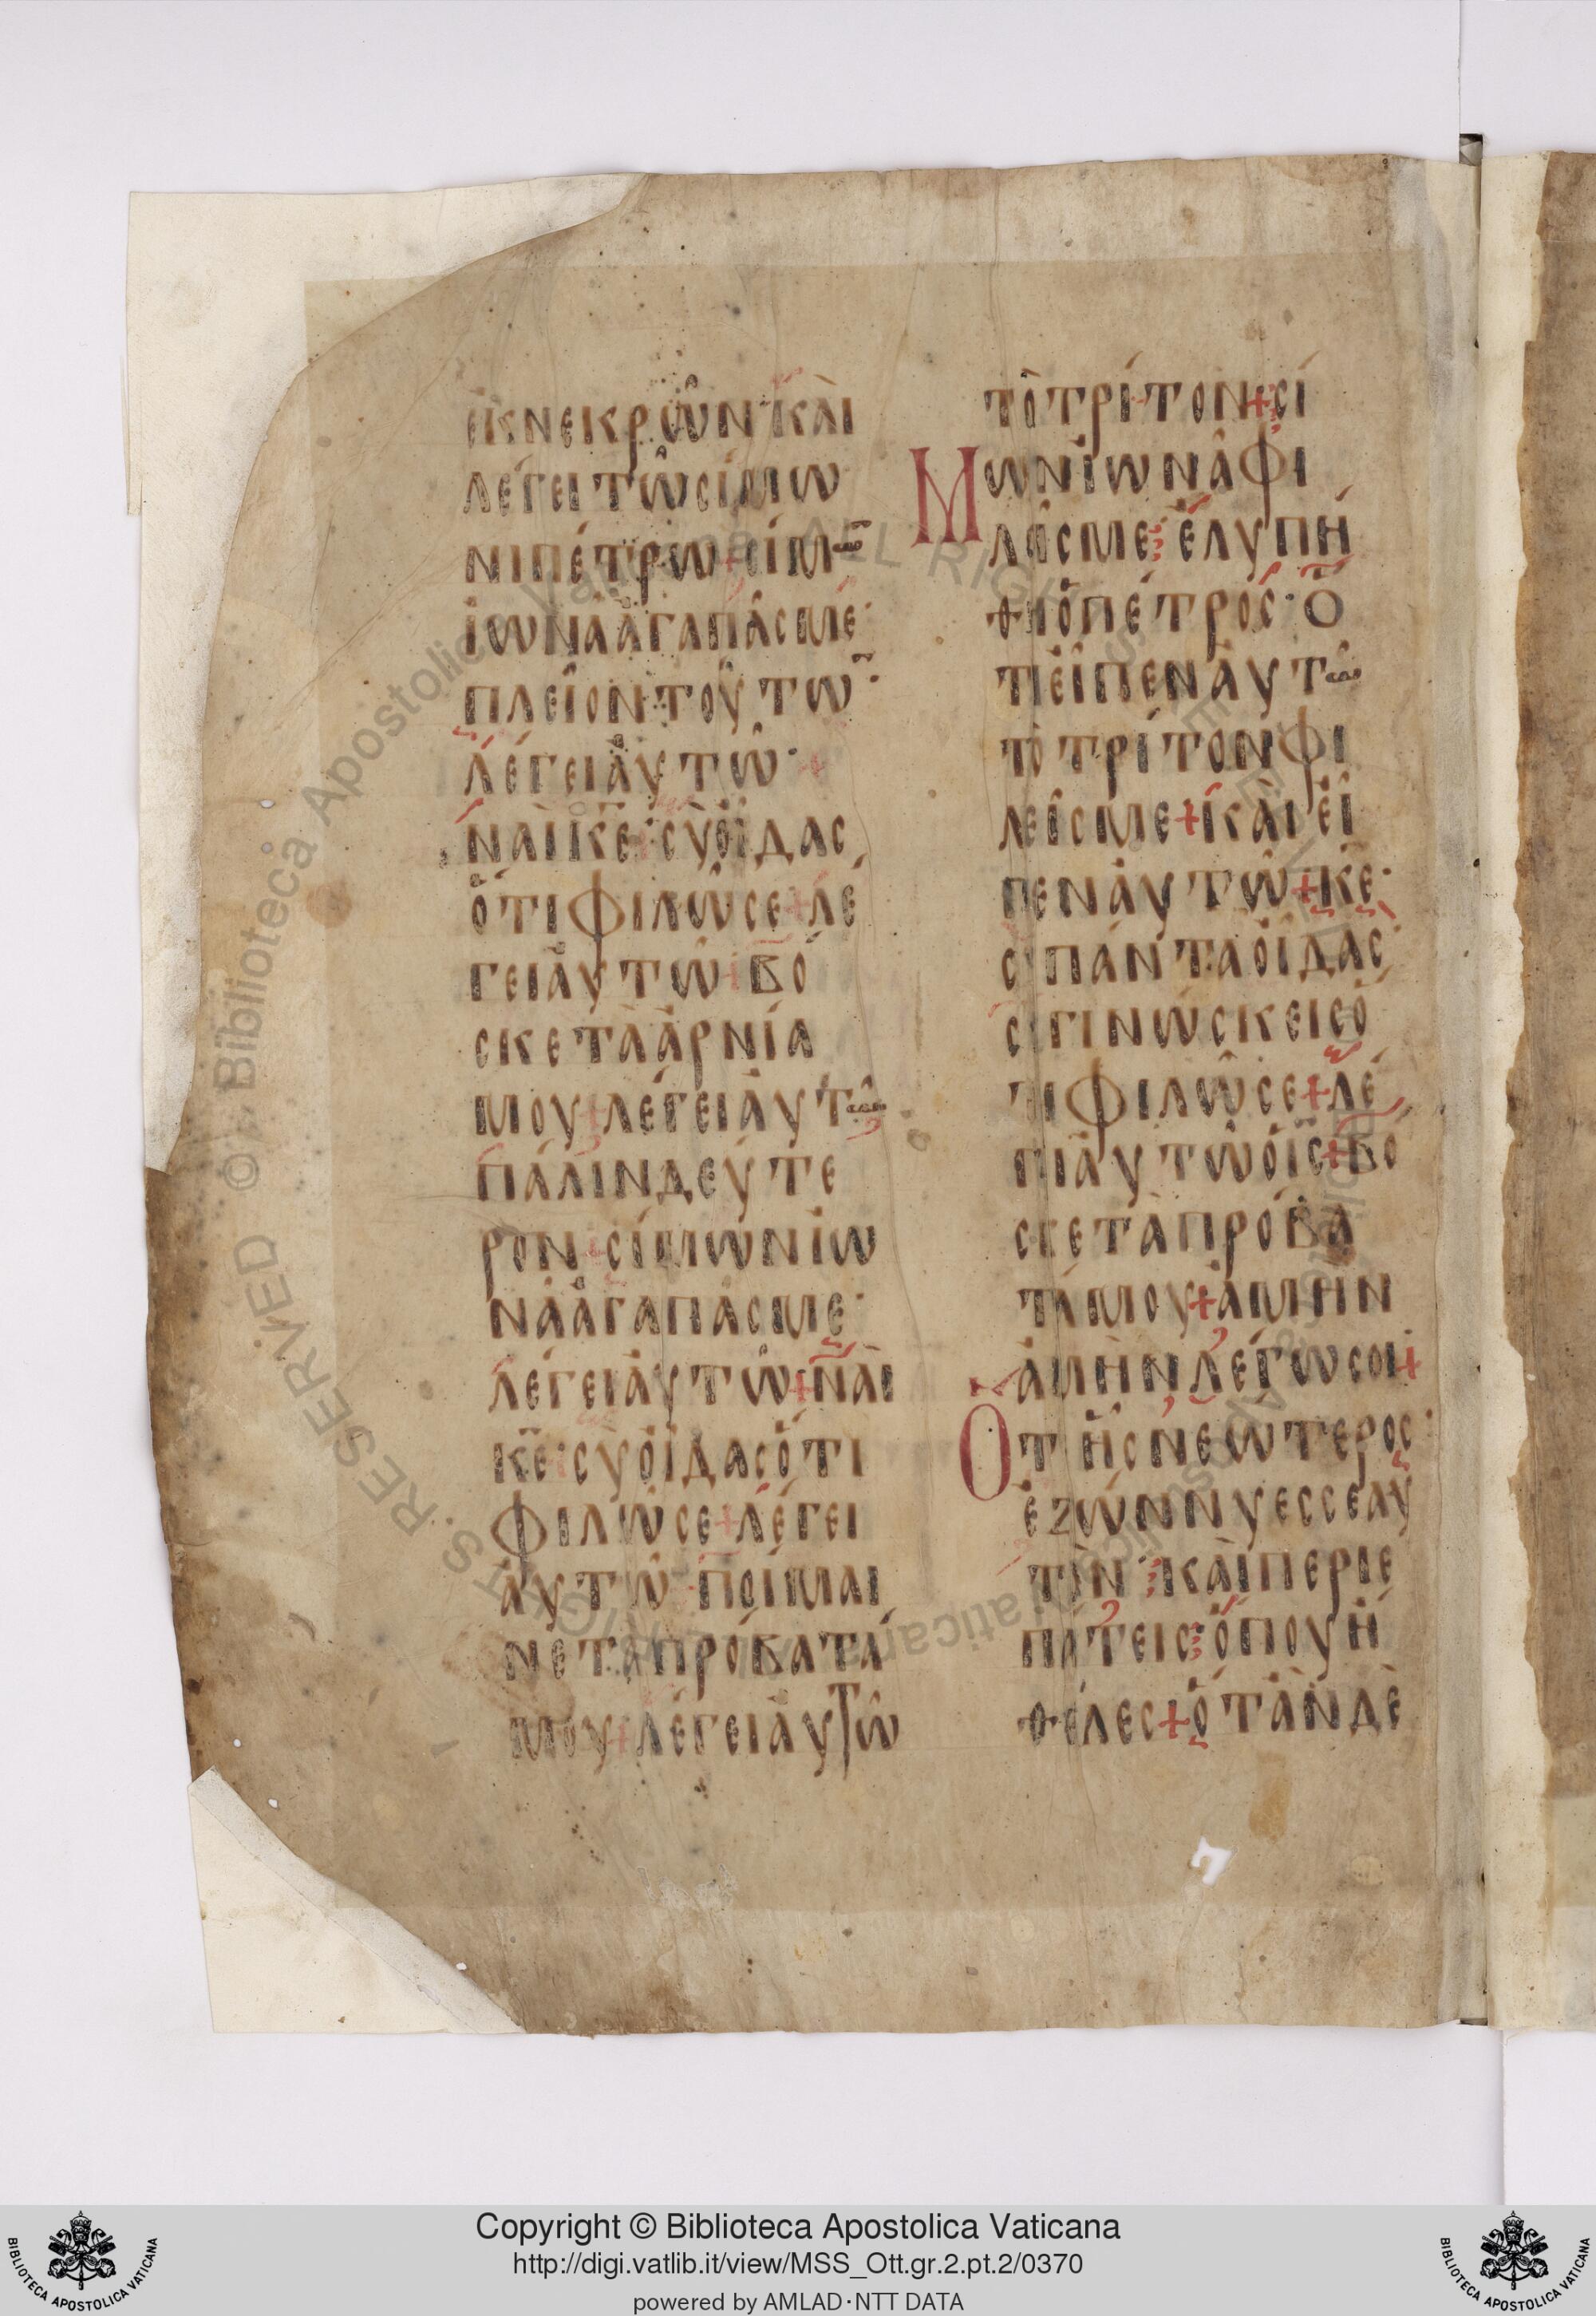 ἐκνεκρῶν καὶ
λέγει τῶ σίμω
νι πέτρω + σίμων
ἰωνᾶ ἀγαπᾶς με
πλεῖον τούτων
λέγει αὐτῶ +
ναὶ κ̅ε̅ σὺ οἶδας
ὅτι φιλῶ σε + λέ
γει αὐτῶ + βό
σκε τὰ ἀρνία
μου + λέγει αὐτῶ
πάλιν δεύτε
ρον + σίμων ἰω
νᾶ ἀγαπᾶς με
λέγει αὐτῶ + ναὶ
κ̅ε̅ σὺ οἶδας ὅτι
φιλῶ σε + λέγει
αὐτῶ ποίμαι
νε τὰ πρόβατά
μου + λέγει αὐτῶ
τὸ τρίτον + σί
Μων ἰωνᾶ φι
λεῖς με ἐλυπή
θη ὁ πέτρος ὅ
τι εἶπεν αὐτῶ
τὸ τρίτον φι
λεῖς με + καὶ εἶ
πεν αὐτῶ + κ̅ε̅
σὺ πάντα οἶδας
σὺ γινώσκεις ὅ
τι φιλῶ σε + λέ
γει αὐτῶ ὁ ι̅ς̅ + βό
σκε τὰ πρόβα
τά μου + ἀμὴν
ἀμὴν λέγω σοι +
Ὅτ ἦς νεώτερος
ἐζώννυες σεαυ
τὸν καὶ περιε
πάτεις ὅπου ἤ
θελες + ὅταν δὲ
Copyright © Biblioteca Apostolica Vaticana
http://digi.vatlib.it/view/MSS_Ott.gr.2.pt.2/0370
powered by AMLAD·NTT DATA
BIBLIOTECA APOSTOLICA VATICANA
BIBLIOTECA APOSTOLICA VATICANA